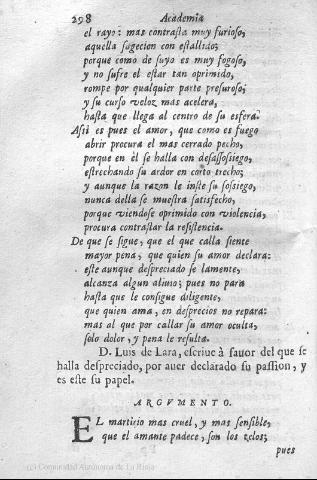 298 Academia
el rayo: mas contrasta muy furioso,
aquella sugecion con estallido;
porque como de suyo es muy fogoso,
y no sufre el estar tan oprimido,
rompe por qualquier parte presuroso;
y su curso veloz mas acelera,
hasta que llega al centro de su esfera.
Assi es pues el amor, que como es fuego
abrir procura el mas cerrado pecho,
porque en èl se halla con desassossiego,
estrechando su ardor en corto trecho;
y aunque la razon le inste su sossiego,
nunca della se muestra satisfecho,
porque viendose oprimido con violencia,
procura contrastar la resistencia.
De que se sigue, que el que calla siente
mayor pena, que quien su amor declara:
este aunque despreciado se lamente,
alcanza algun aliuio; pues no para
hasta que le consigue diligente,
que quien ama, en desprecios no repara:
mas al que por callar su amor oculta,
solo dolor, y pena le resulta.
D. Luis de Lara, escriue à fauor del que se
halla despreciado, por auer declarado su passion, y
es este su papel.
ARGVMENTO.
EL martirio mas cruel, y mas sensible,
que el amante padece, son los zelos;
pues
(c) Comunidad Autónoma de La Rioja